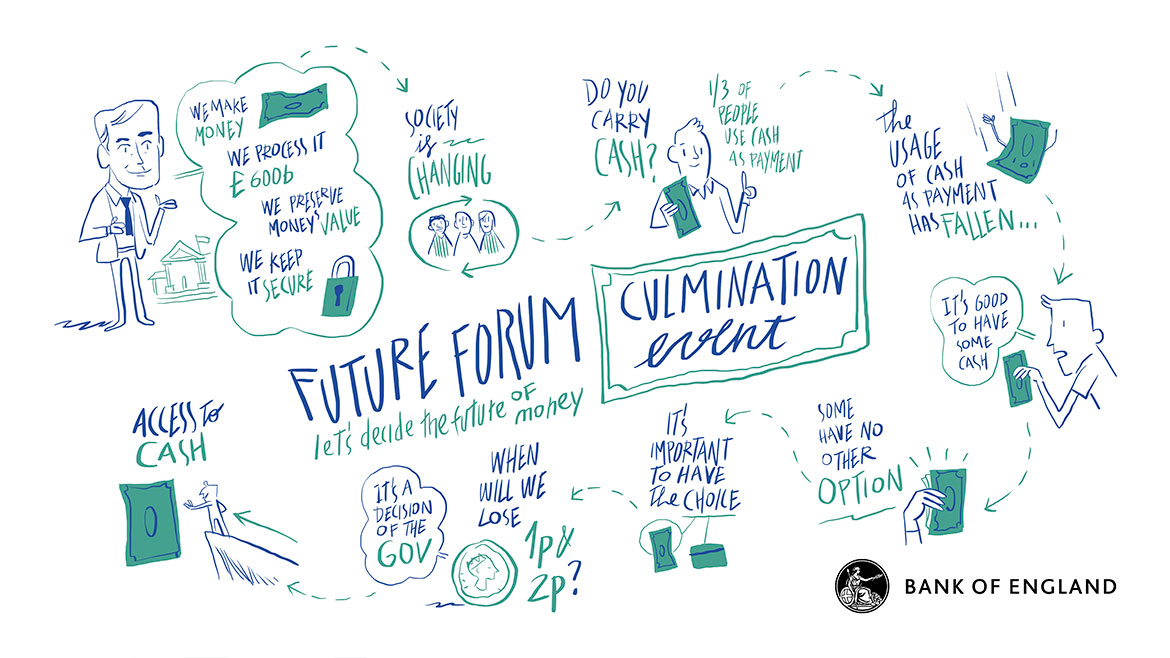 WE MAKE
MONEY
WE PROCESS IT
£600b
WE PRESERVE
MONEY'S VALUE
WE KEEP
IT SECURE
SOCIETY
is
CHANGING
DO YOU
CARRY
CASH?
1/3 OF
PEOPLE
USE CASH
AS PAYMENT
The
USAGE
OF CASH
AS PAYMENT
HAS FALLEN...
IT'S GOOD
TO HAVE
SOME
CASH
SOME
HAVE NO
OTHER
OPTION
IT'S
IMPORTANT
TO HAVE
The CHOICE
WHEN
WILL WE
LOSE
1p &
2p?
IT'S A
DECISION
OF THE
GOV
ACCESS to
CASH
FUTURE FORUM
let's decide the future of money
CULMINATION
event
BANK OF ENGLAND